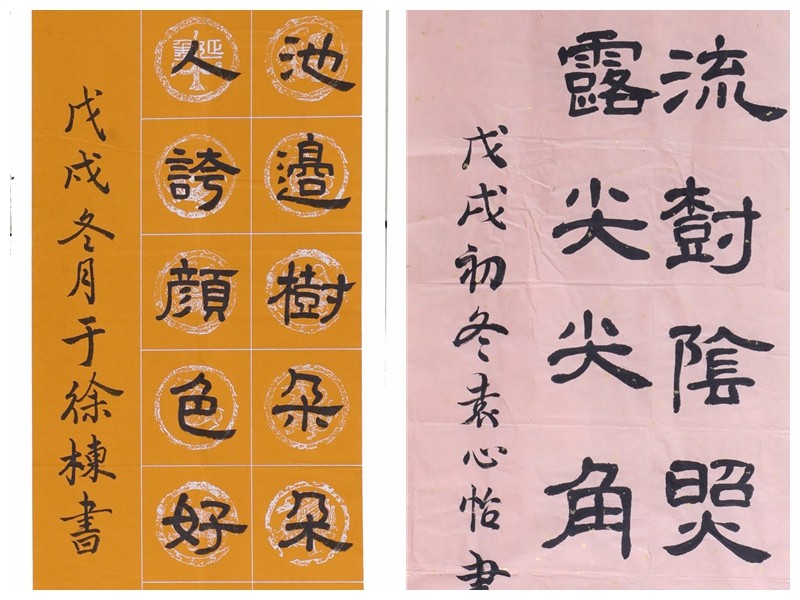 池邉樹朵朵
人誇顔色好
戊戌冬月于徐棟書
流樹陰照
露尖尖角
戊戌初冬袁心怡書